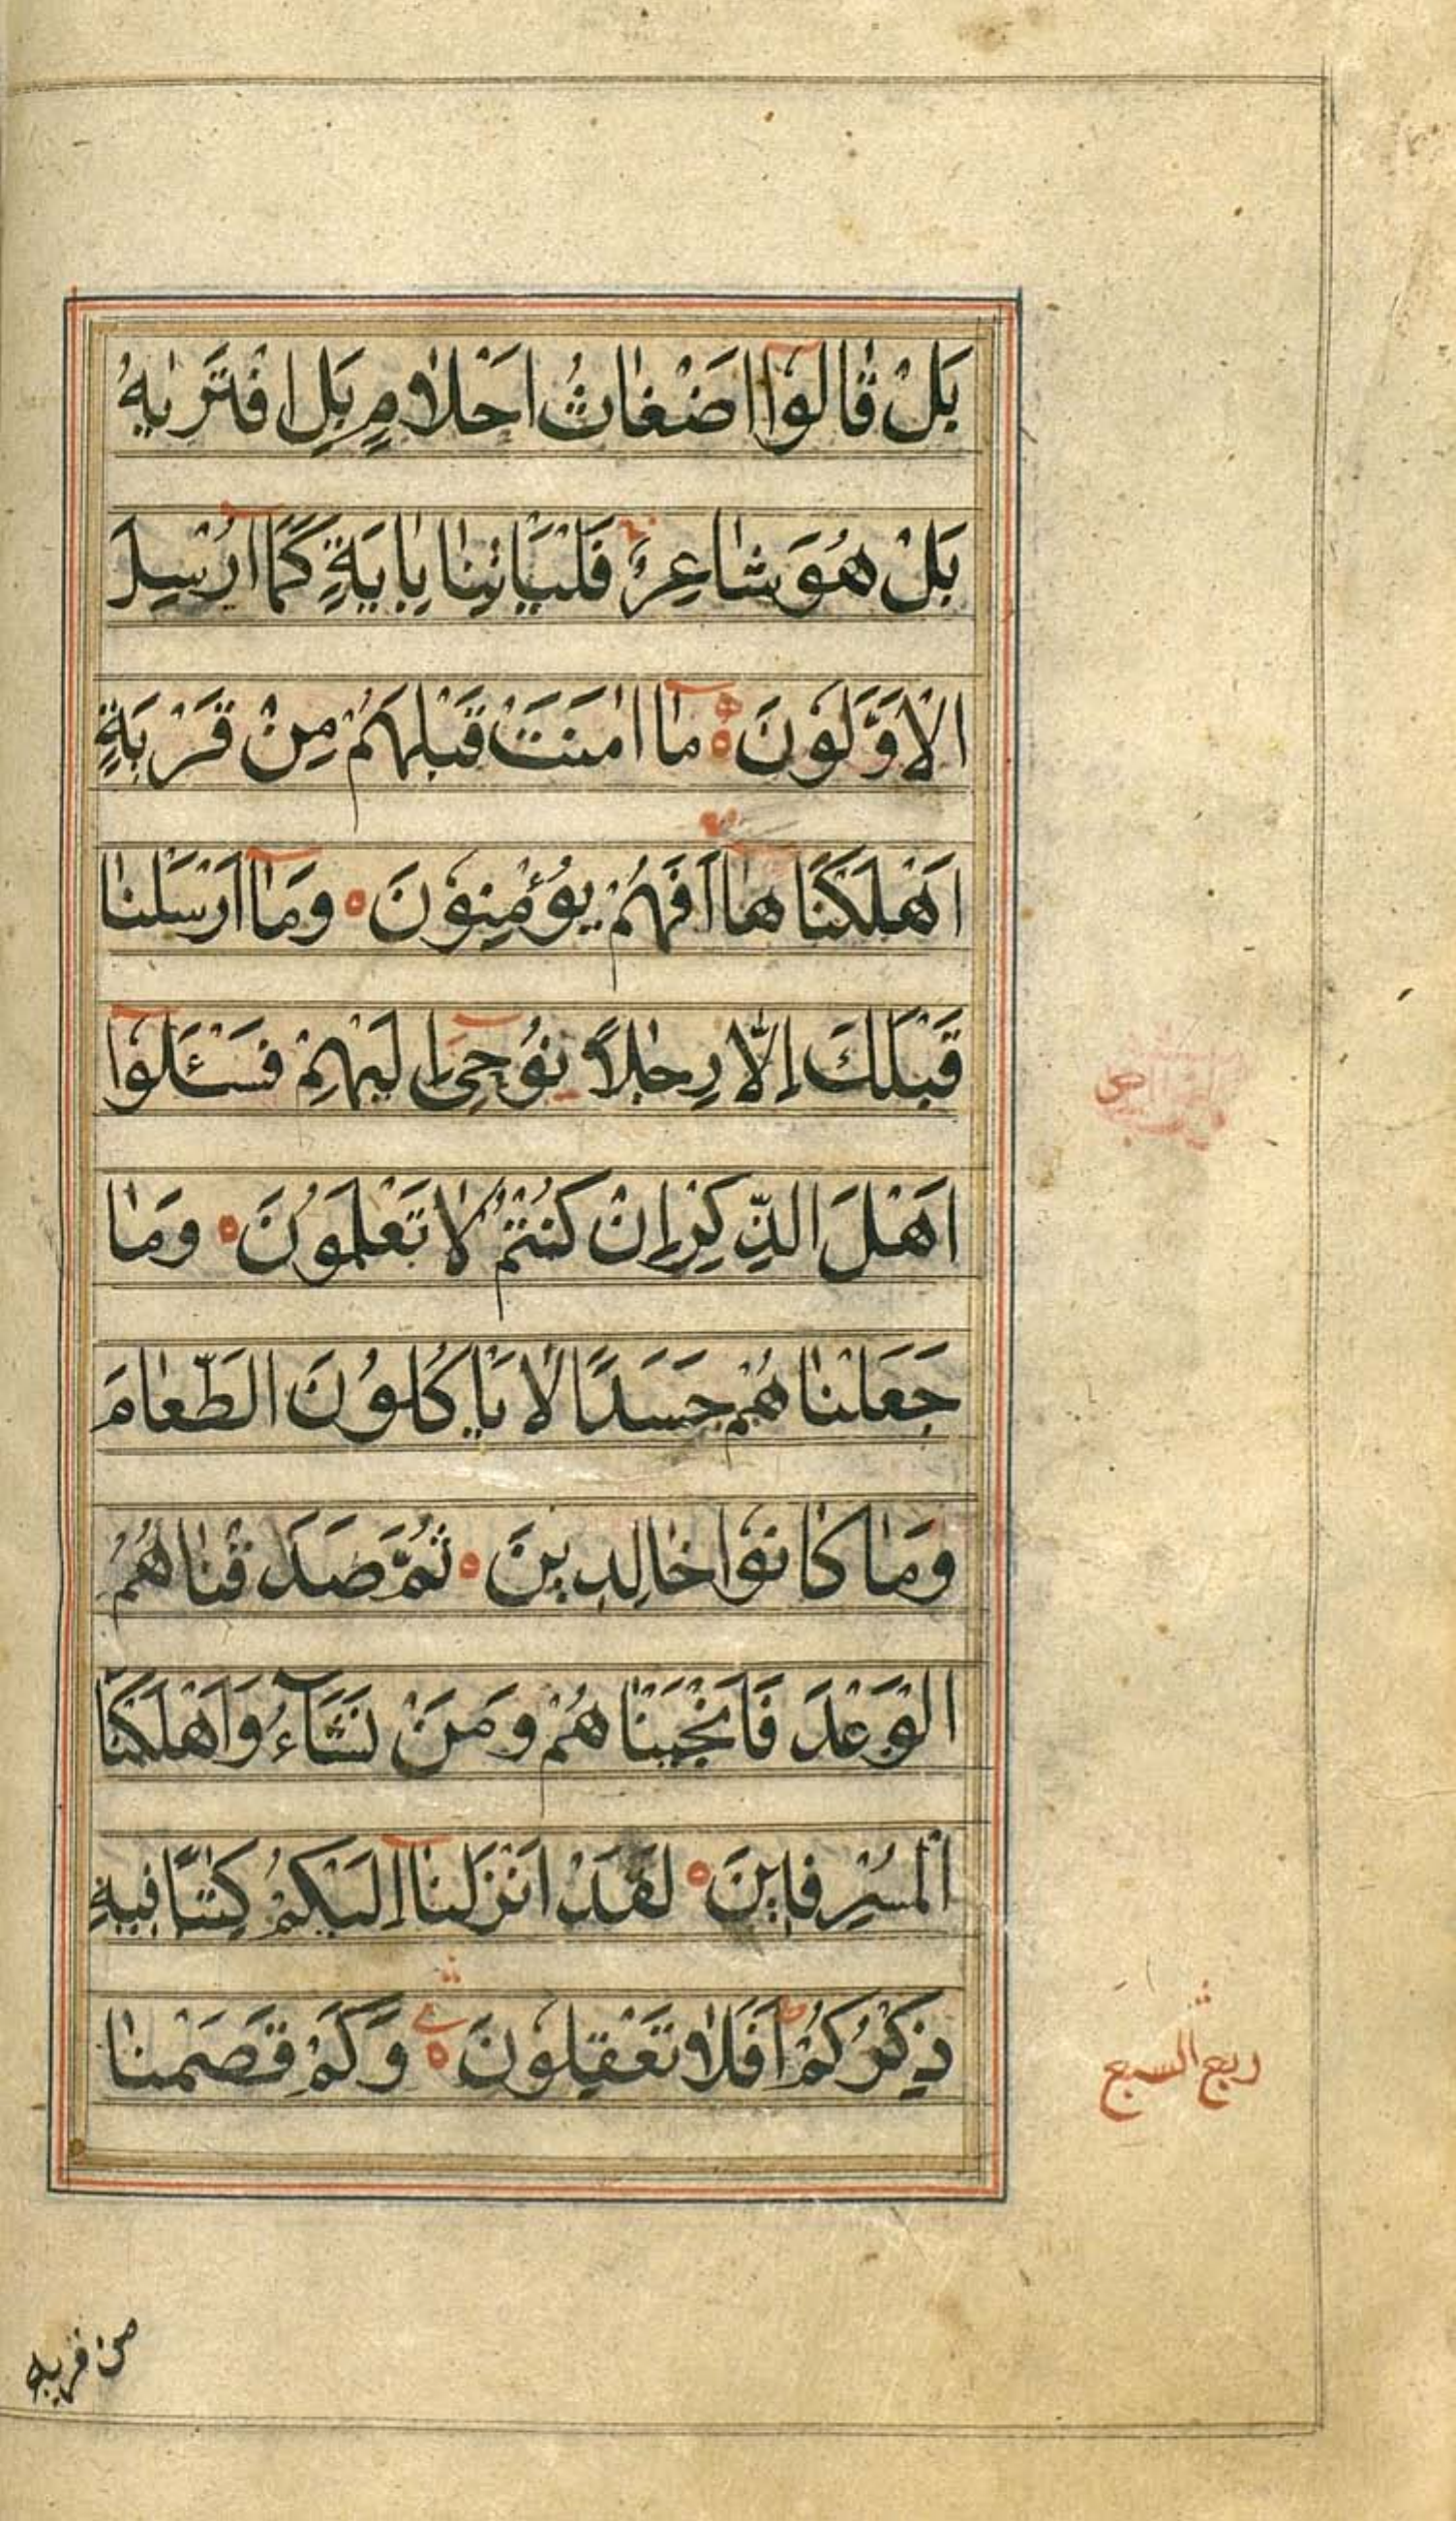 بَلْ قٰالُوٓا اَضْغٰاثُ اَحْلٰامٍ بَلِ افْتَرٰیهُ
بَلْ هُوَ شٰاعِرٌ فَلْیَاْتِنٰا بِاٰیَةٍ كَمٰٓا اُرْسِلَ
الْاَوَّلُونَ ه مٰٓا اٰمَنَتْ قَبْلَهُمْ مِنْ قَرْیَةٍ
اَهْلَكْنٰاهٰٓا اَفَهُمْ یُؤْمِنُونَ ه وَمٰٓا اَرْسَلْنٰا
قَبْلَكَ اِلّٰا رِجٰالًا نُوحِیٓ اِلَیْهِمْ فَسْئَلُوٓا
اَهْلَ الذِّكْرِ اِنْ كُنْتُمْ لٰا تَعْلَمُونَ ه وَمٰا
جَعَلْنٰاهُمْ جَسَدًا لٰا یَاْكُلُونَ الطَّعٰامَ
وَمٰا كٰانُوا خٰالِدِینَ ه ثُمَّ صَدَقْنٰاهُمُ
الْوَعْدَ فَاَنْجَیْنٰاهُمْ وَمَنْ نَشٰٓاءُ وَاَهْلَكْنَا
الْمُسْرِفِینَ ه لَقَدْ اَنْزَلْنٰٓا اِلَیْكُمْ كِتٰبًا فِیهِ
ذِكْرُكُمْ ط اَفَلٰا تَعْقِلُونَ ه وَكَمْ قَصَمْنٰا
ربع السبع
من قریه